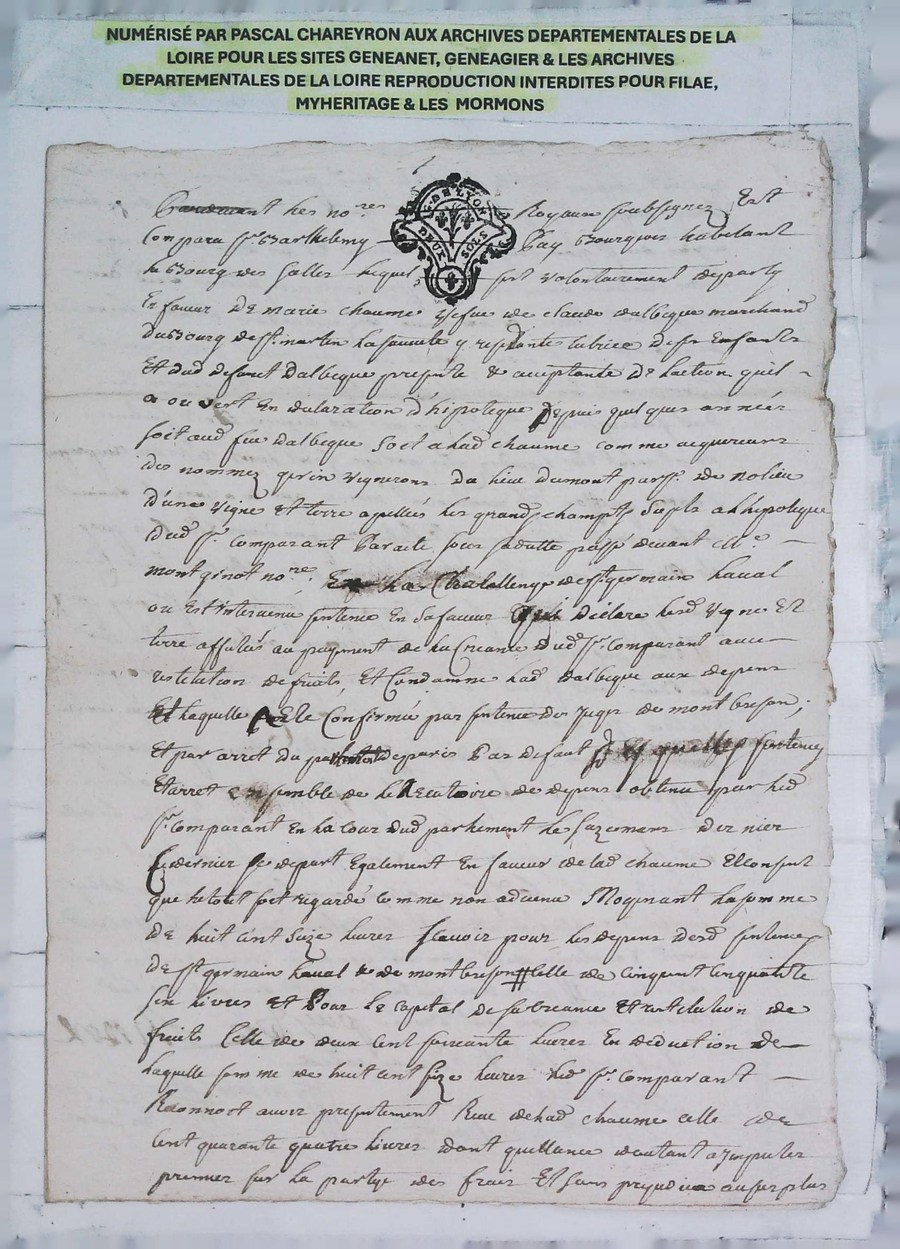 NUMÉRISÉ PAR PASCAL CHAREYRON AUX ARCHIVES DEPARTEMENTALES DE LA
LOIRE POUR LES SITES GENEANET, GENEAGIER & LES ARCHIVES
DEPARTEMENTALES DE LA LOIRE REPRODUCTION INTERDITES POUR FILAE,
MYHERITAGE & LES MORMONS
G. DE LYON
DEUX SOLS
les no.res Royaux soubsignez Est
Comparu sr. Barthelemy Gay Bourgeois habitant
le Bourg des salles lequel sest volontairement departy
En faveur De marie chaume vefve de claude dalbegue marchand
du Bourg de st. martin la sauveté y residante tutrice de ses Enfants
Et dud defunt Dalbegue presente & acceptante De laction quil
a ouvert En declaration d'hipoteque Depuis quelques année
soit aud feu dalbegue soit a lad chaume comme acquereurs
des nommez vignerons du lieu dumont parss. de nolieu
d'une vigne Et terre apellés les grands champts sujets a lhipoteque
dud sr. comparant Par acte sous sa datte passé devant Me.
montginot no.re En La Chatellenye de st germain Laval
ou Est intervenu sentence En sa faveur déclare lesd vigne Et
terre affectés au payment de la Creance dud sr. comparant avec
restitution de fruits, Et Condamne lad dalbegue aux depens
Et laquelle Este Confirmée par sentence des Juges de montbrison,
Et par arret du parlement de paris Par defaut Desquelles sentences
Et arret ensemble de lexecutoire de depens obtenu par led
sr. comparant En la Cour dud parlement le onzemars dernier
se depart Egalement En faveur de lad chaume Et consent
que le tout soit regardé comme non advenu Moyenant la somme
De huit cent seize livres scavoir pour les depens desd sentences
De st. germain Laval & de montbrison Celle de cinq cent cinquante
six livres Et Pour Le Capital de sa creance Et restitution de
fruits Celle de deux cent soixante livres En deduction de
laquelle somme de huit cent seize livres led sr. comparant
Reconnoit avoir presentement Receu de lad chaume celle de
Cent quarante quatre livres dont quittance dautant a Imputer
premier sur la partye des frais Et sans prejudice au surplus